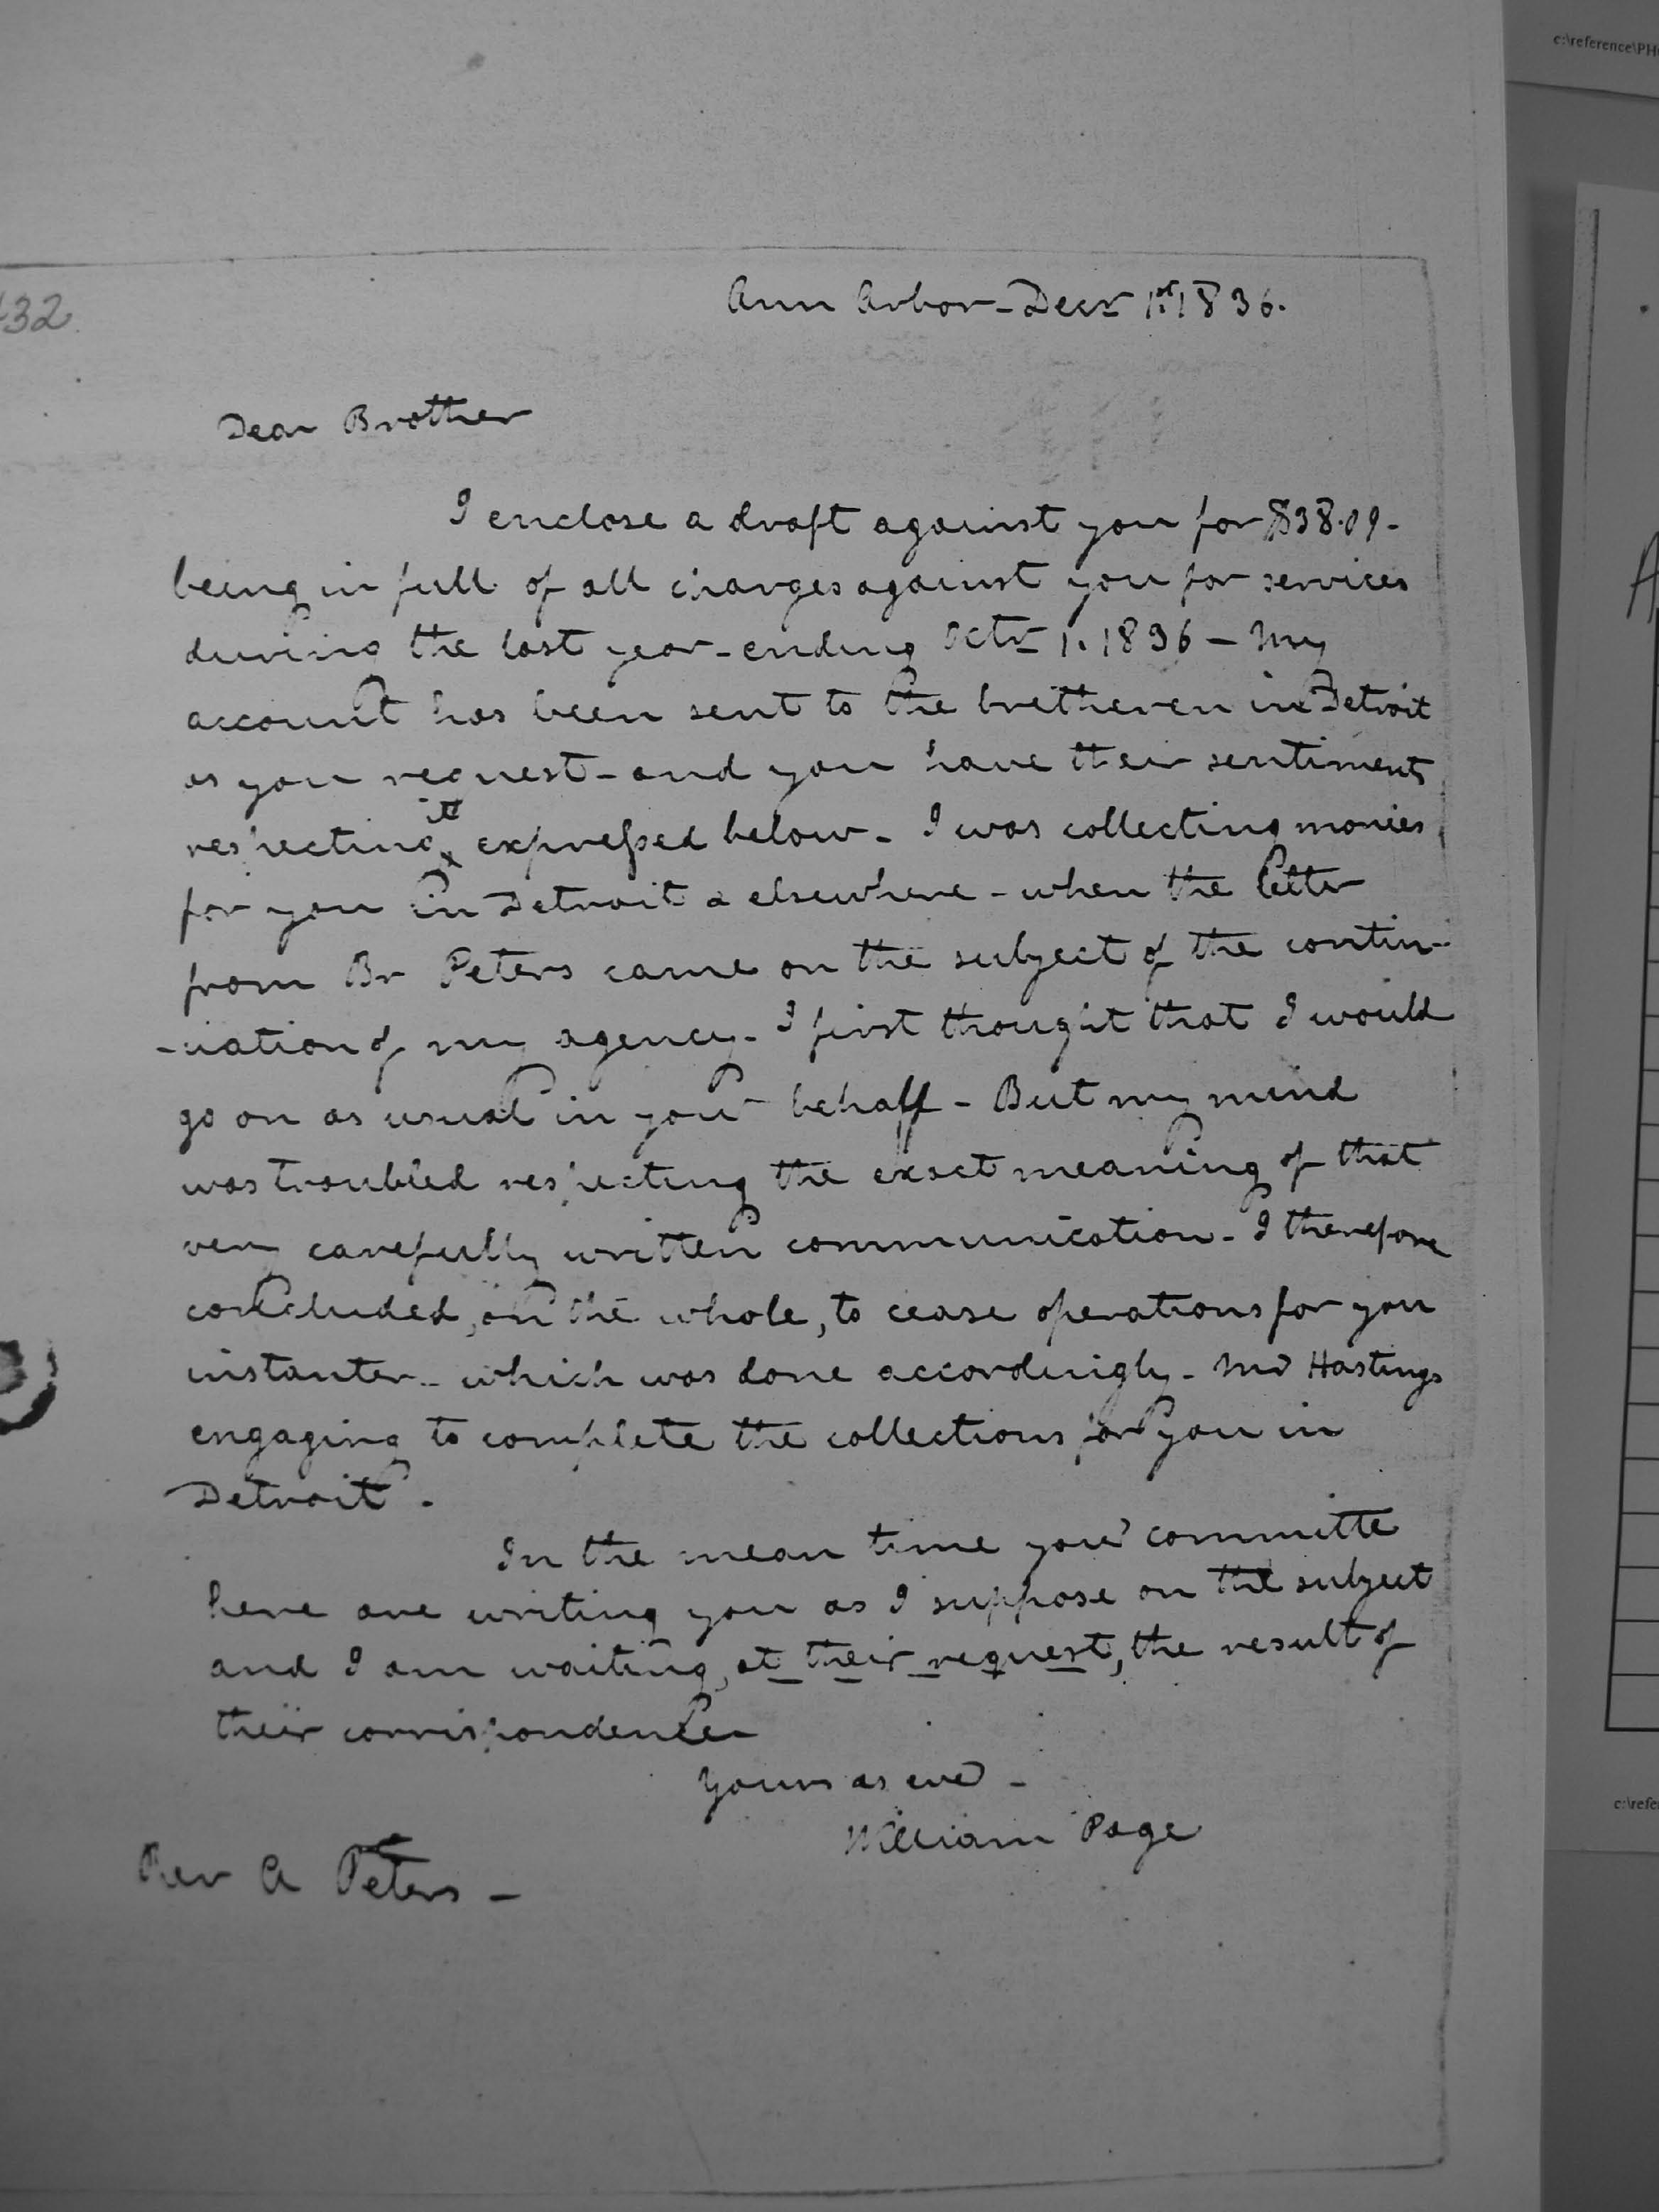 c:\reference\PH
432
Ann Arbor - Decr 1st 1836.
Dear Brother
I enclose a draft against you for $38.09 -
being in full of all charges against you for services
during the last year - ending Octr 1. 1836 - My
account has been sent to the bretheren in Detroit
as you request - and you have their sentiments
respecting it expressed below - I was collecting monies
for you in Detroit & elsewhere - when the letter
from Br Peters came on the subject of the contin-
-uation of my agency - I first thought that I would
go on as usual in your behalf - But my mind
was troubled respecting the exact meaning of that
very carefully written communication - I therefore
concluded, on the whole, to cease operations for you
instanter - which was done accordingly - Mr Hastings
engaging to complete the collections for you in
Detroit.
In the mean time your committe
here are writing you as I suppose on the subject
and I am waiting, at their request, the result of
their correspondence
Yours as ever -
William Page
Rev A Peters -
c:\refe